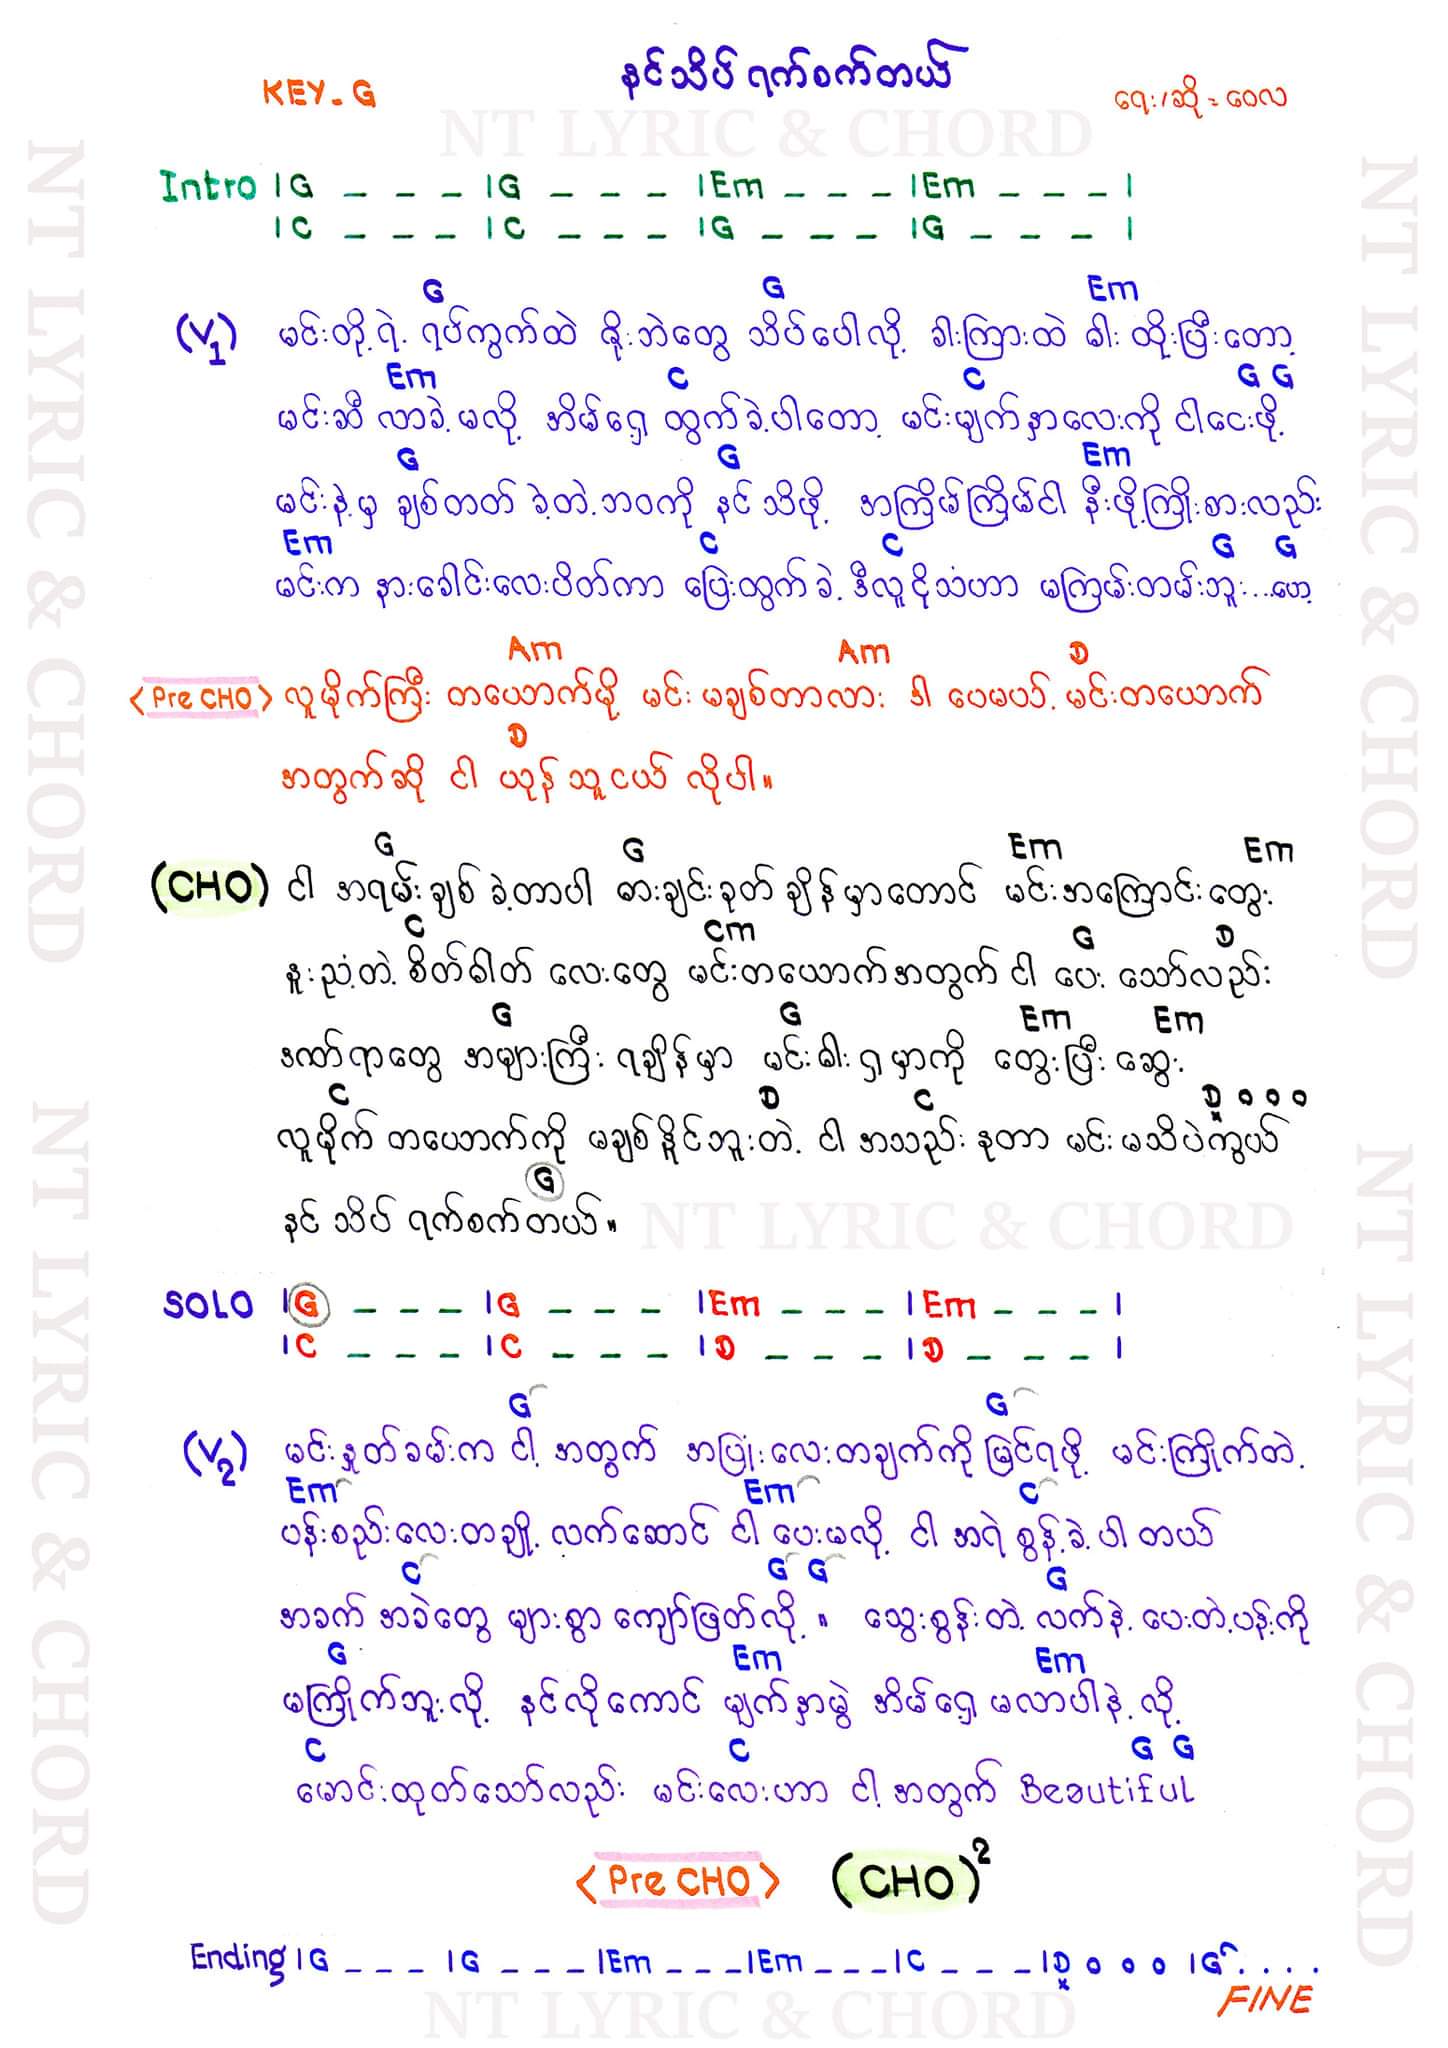 နင်သိပ်ရက်စက်တယ်
KEY - G
ရေး/ဆို = ဝေလ
NT LYRIC & CHORD
Intro |G _ _ _ |G _ _ _ |Em _ _ _ |Em _ _ _ |
|C _ _ _ |C _ _ _ |G _ _ _ |G _ _ _ |
G G Em
(V1) မင်းတို့ရဲ့ ရပ်ကွက်ထဲ ဇိုးဘဲတွေ သိပ်ပေါလို့ ခါးကြားထဲ ဓါး ထိုးပြီးတော့
Em C C G G
မင်းဆီ လာခဲ့မလို့ အိမ်ရှေ့ ထွက်ခဲ့ပါတော့ မင်းမျက်နှာလေးကို ငါငေးဖို့
G G Em
မင်းနဲ့မှ ချစ်တတ် ခဲ့တဲ့ဘဝကို နင် သိဖို့ အကြိမ်ကြိမ်ငါ နီးဖို့ကြိုးစားလည်း
Em C C G G
မင်းက နားခေါင်းလေးပိတ်ကာ ပြေးထွက်ခဲ့ ဒီလူငိုသံဟာ မကြမ်းတမ်းဘူး...ဟေ့
Am Am D
<Pre CHO> လူမိုက်ကြီး တယောက်မို့ မင်း မချစ်တာလား ဒါ ပေမယ့် မင်းတယောက်
D
အတွက်ဆို ငါ ယုန်သူငယ် လိုပါ။
G G Em Em
(CHO) ငါ အရမ်းချစ် ခဲ့တာပါ ဓားချင်းခုတ် ချိန်မှာတောင် မင်းအကြောင်းတွေး
C Cm G D
နူးညံ့တဲ့ စိတ်ဓါတ် လေးတွေ မင်းတယောက်အတွက် ငါ ပေး သော်လည်း
G G Em Em
ဒဏ်ရာတွေ အများကြီး ရချိန်မှာ မင်းဓါးရှမှာကို တွေးပြီး ဆွေး
C D C D o o o
လူမိုက် တယောက်ကို မချစ်နိူင်ဘူးတဲ့ ငါ အသည်း နုတာ မင်းမသိပဲကွယ်
G
နင် သိပ် ရက်စက်တယ်။
NT LYRIC & CHORD
SOLO |G _ _ _ |G _ _ _ |Em _ _ _ |Em _ _ _ |
|C _ _ _ |C _ _ _ |D _ _ _ |D _ _ _ |
G G
(V2) မင်းနှုတ်ခမ်းက ငါ့ အတွက် အပြုံးလေးတချက်ကို မြင်ရဖို့ မင်းကြိုက်တဲ့
Em Em C
ပန်းစည်းလေးတချို့ လက်ဆောင် ငါ ပေးမလို့ ငါ အရဲစွန့်ခဲ့ပါ တယ်
C G G G
အခက် အခဲတွေ များစွာ ကျော်ဖြတ်လို့ ။ သွေးစွန်းတဲ့ လက်နဲ့ ပေးတဲ့ပန်းကို
G Em Em
မကြိုက်ဘူးလို့ နင်လိုကောင် မျက်နှာမွဲ အိမ်ရှေ့ မလာပါနဲ့ လို့
C C G G
မောင်းထုတ်သော်လည်း မင်းလေးဟာ ငါ့ အတွက် Beautiful
<Pre CHO> (CHO)²
Ending |G _ _ _ |G _ _ _ |Em _ _ _ |Em _ _ _ |C _ _ _ |D o o o |G . . . .
FINE
NT LYRIC & CHORD
NT LYRIC & CHORD
NT LYRIC & CHORD
NT LYRIC & CHORD
NT LYRIC & CHORD